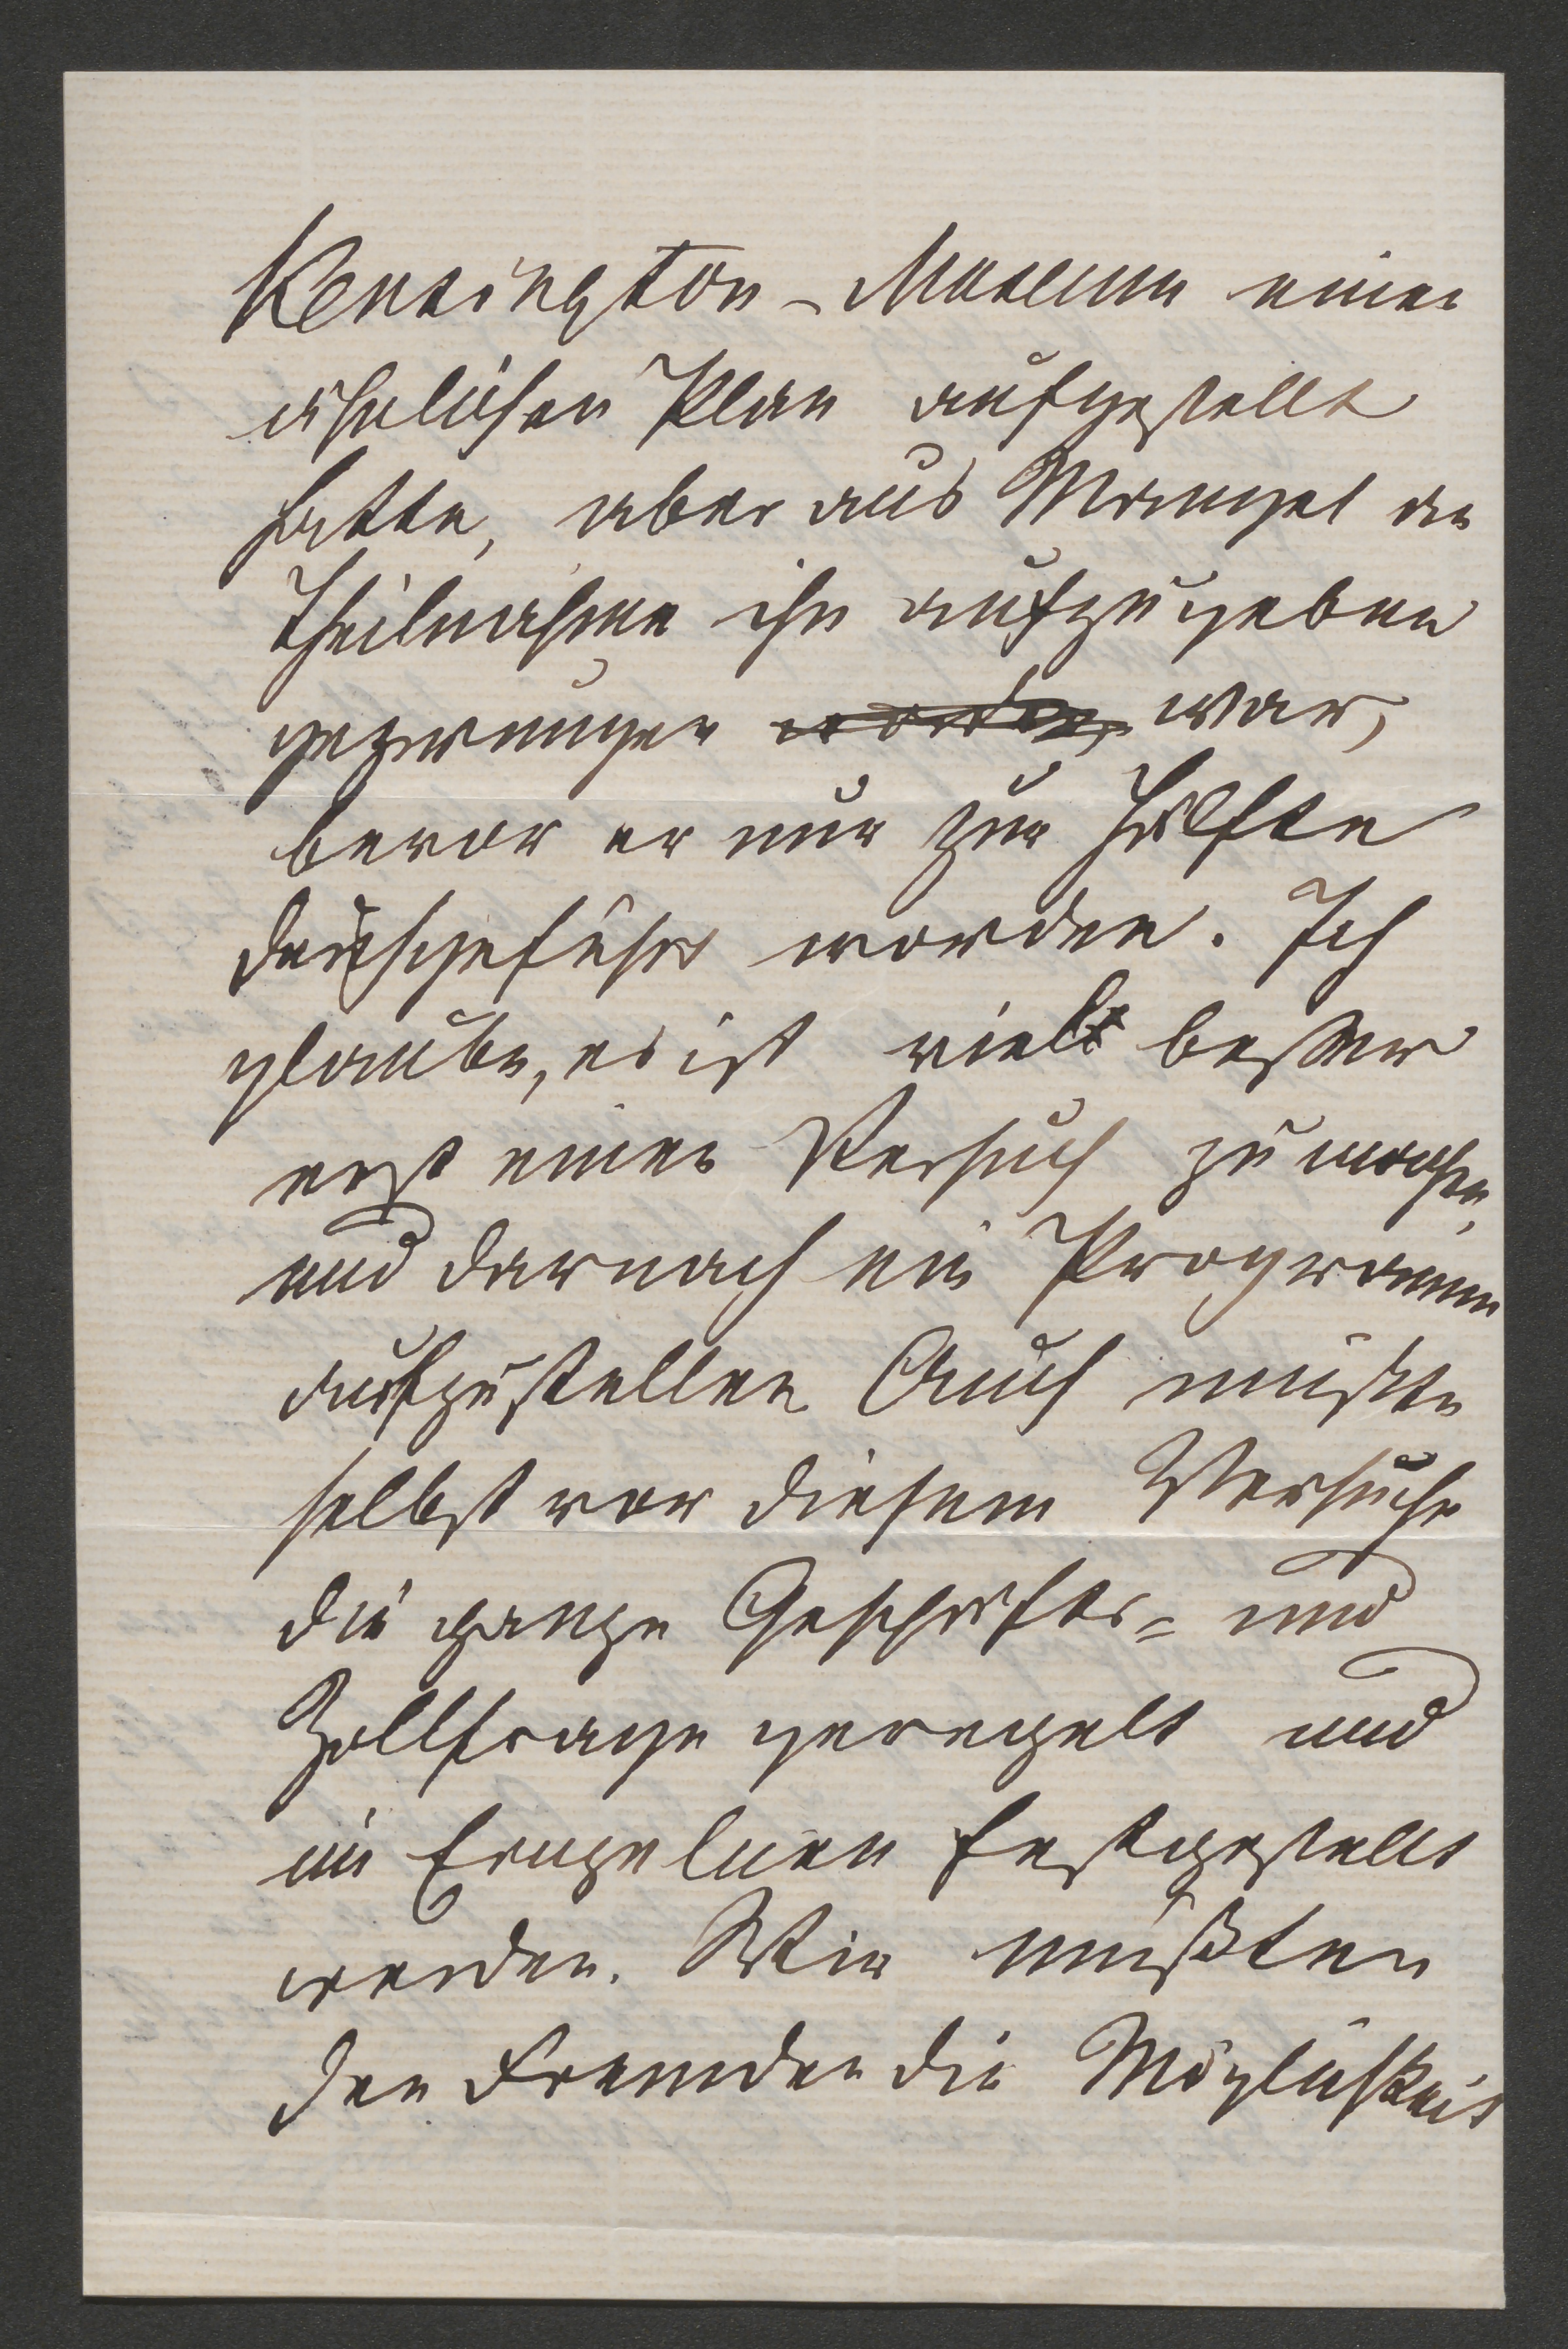 Kensington-Museum einen
ähnlichen Plan aufgestellt
hatte, aber aus Mangel an
Theilnahme ihn aufzugeben
gezwungen worden, war,
bevor er nur zur Hälfte
durchgeführt worden. Ich
glaube, es ist viel besser
erst einen Versuch zu machen,
und darnach ein Programm
aufzustellen Auch müßte
selbst vor diesem Versuche
die ganze Geschäfts- und
Zollfrage geregelt und
im Einzelnen festgestellt
werden. Wir müßten
den Fremden die Möglichkeit